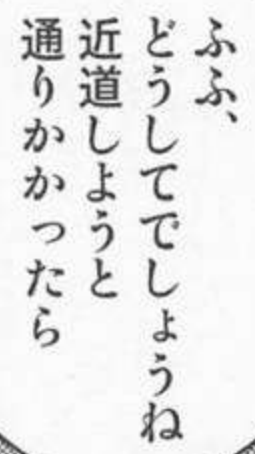 ふふ、
どうしてでしょうね
近道しようと
通りかかったら